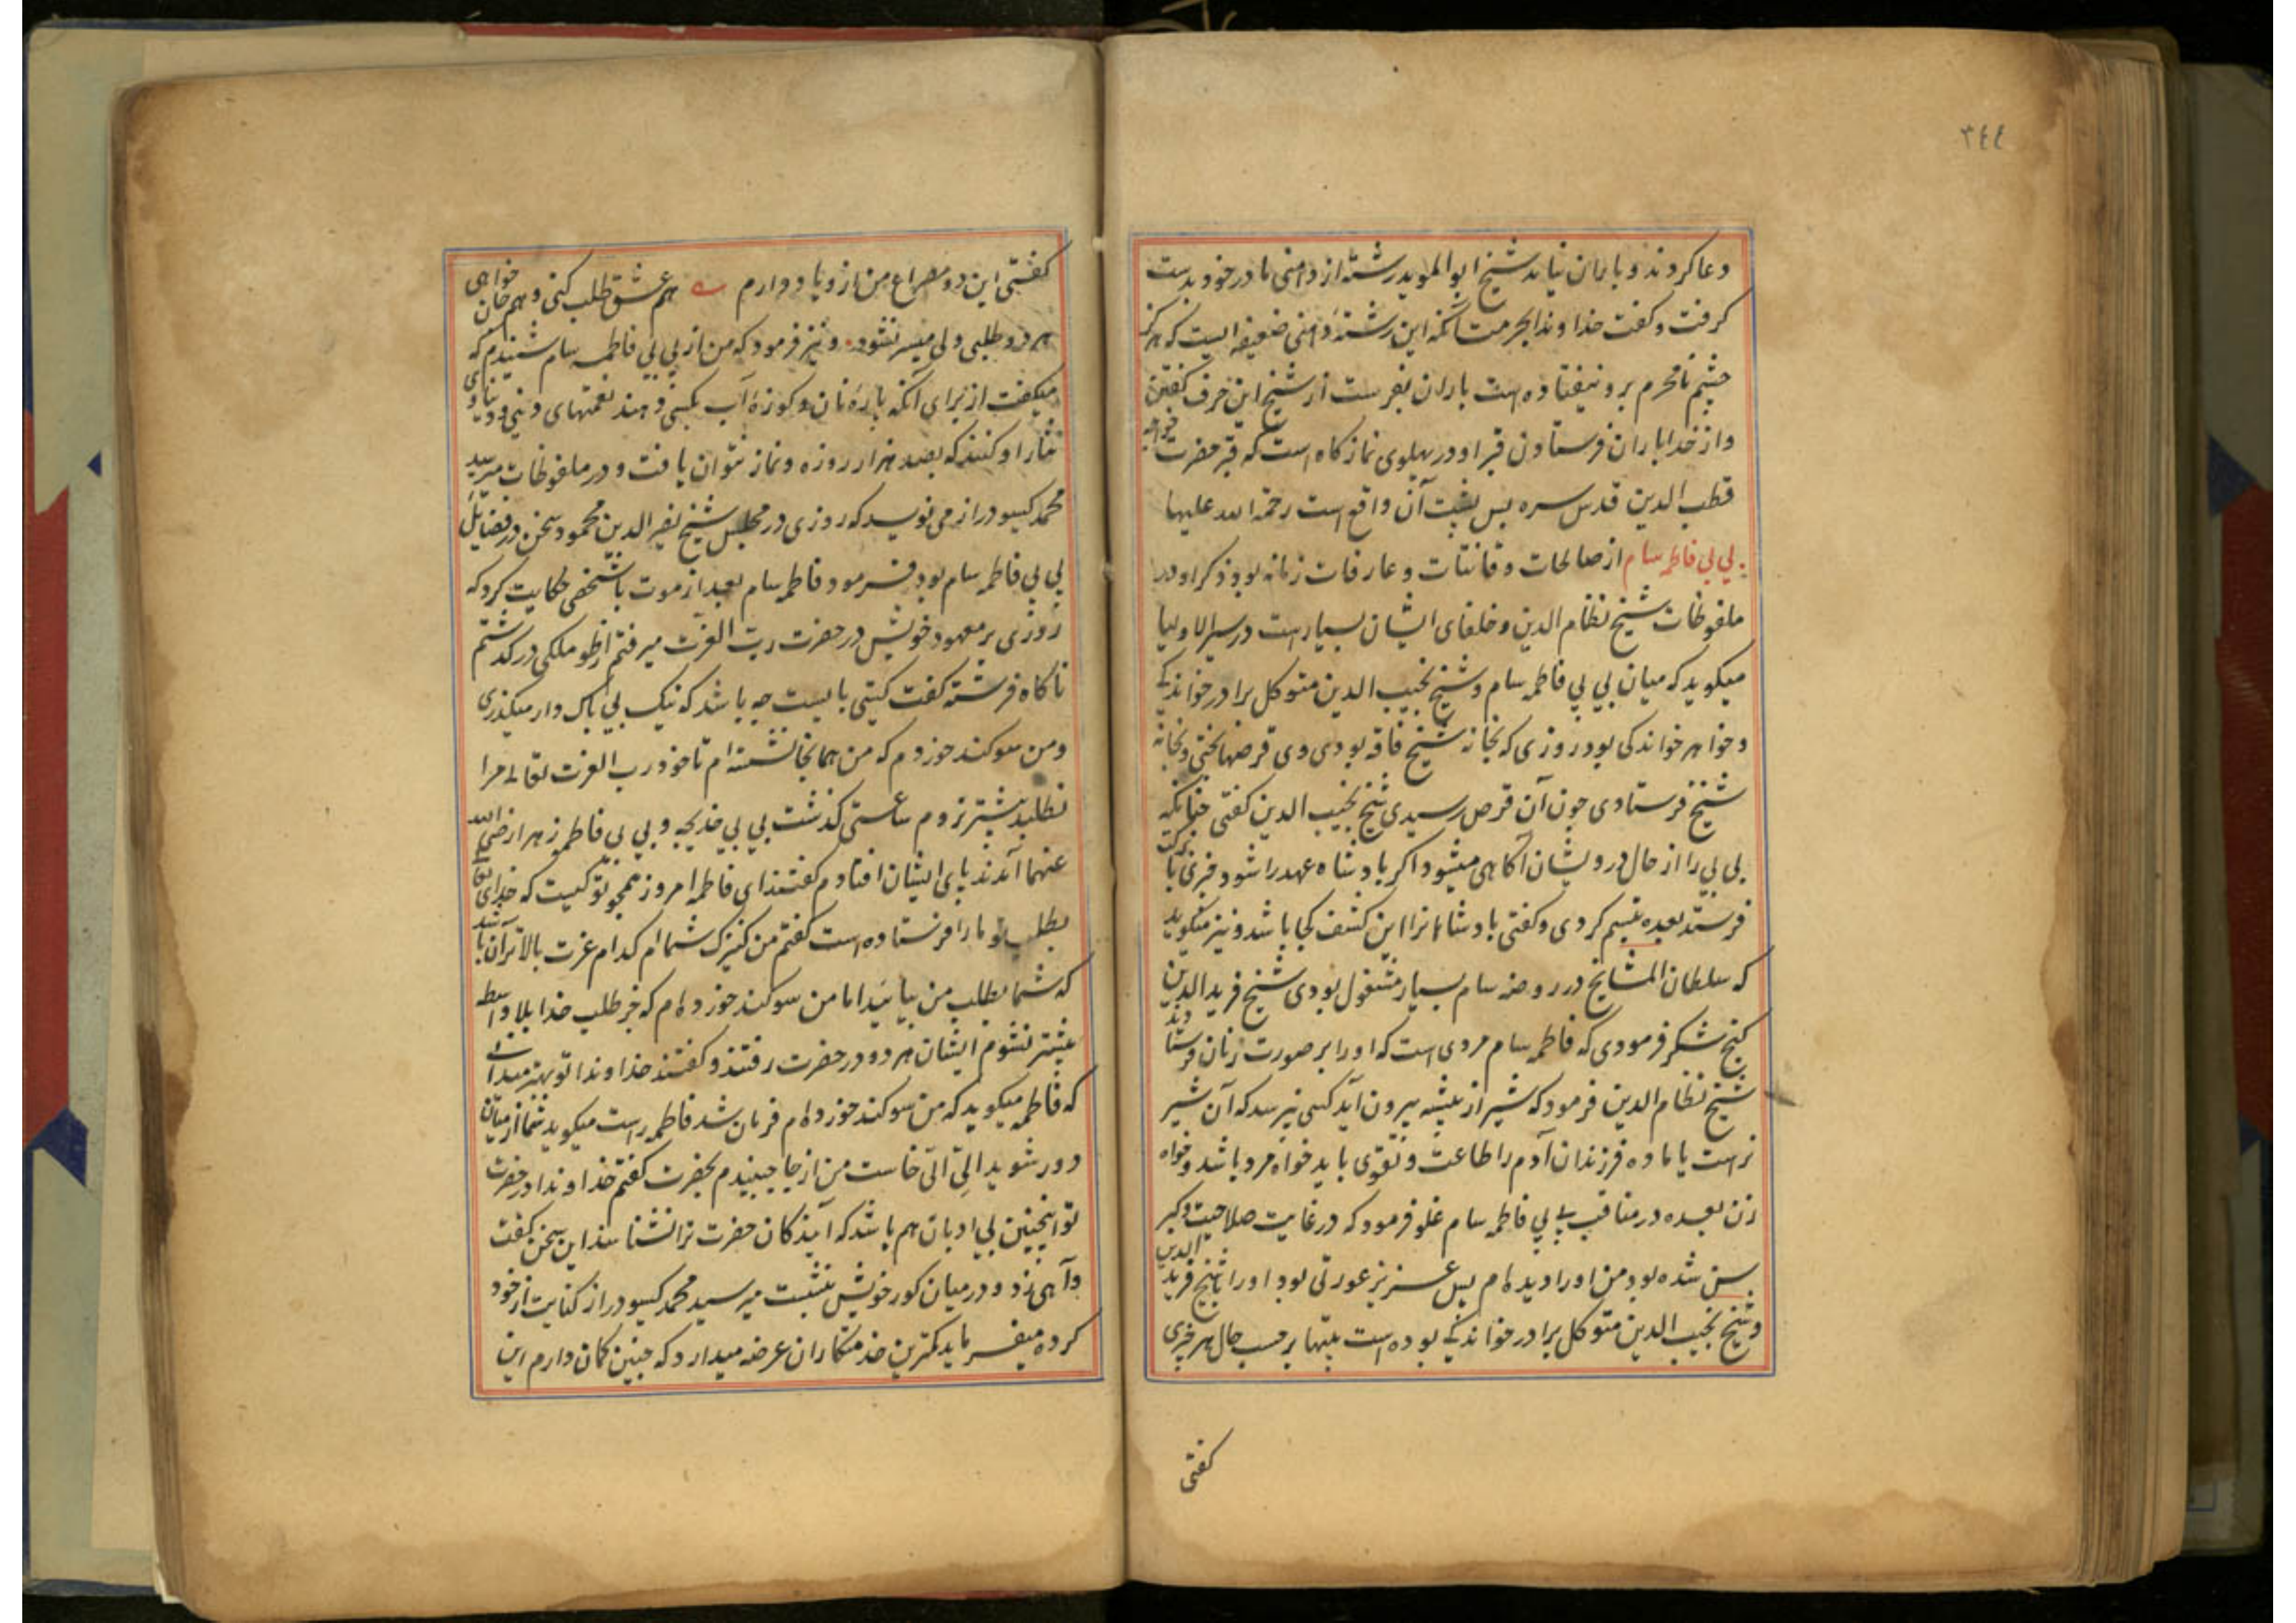 ٣٤٤
دعا کردند و باران نیامد شیخ ابو الموید رشته از دامنی مادر خود بدست
کرفت و کفت خداوندا بحرمت آنکه این رشته دامنی ضعیفه ایست که هرکز
چشم نامحرم برو نیفتاده است باران بفرست از شیخ این حرف کفتن
و از خدا باران فرستادن قبر او در پهلوی نمازکاه است که قبر حضرت خواجه
قطب الدین قدس سره پس پشت آن واقع است رحمة الله علیها
بی بی فاطمه سام از صالحات و قانتات و عارفات زمانه بود ذکر او در
ملفوظات شیخ نظام الدین و خلفای ایشان بسیار است در سیر الاولیا
میکوید که میان بی بی فاطمه سام و شیخ نجیب الدین متوکل برادر خواندکی
و خواهر خواندکی بود روزی که بخانه شیخ فاقه بودی وی قرصها پختی و بخانه
شیخ فرستادی چون آن قرص رسیدی شیخ نجیب الدین کفتی چنانکه
بی بی را از حال درویشان آکاهی میشود اکر پادشاه عهد را شود چیزی با برکت
فرستد بعده تبسم کردی و کفتی پادشاهانرا این کشف کجا باشد و نیز میکوید
که سلطان المشایخ در روضه سام بسیار مشغول بودی شیخ فرید الدین
کنج شکر فرمودی که فاطمه سام مردی است که او را بر صورت زنان فرستادند
شیخ نظام الدین فرمود که شیر از بیشه بیرون آید کسی نپرسد که آن شیر
نر است یا ماده فرزندان آدم را طاعت و تقوی باید خواه مرد باشد و خواه
زن بعده در مناقب بی بی فاطمه سام غلو فرمود که در غایت صلاحیت و کبر
سن شده بود من او را دیده ام بس عزیز عورتی بود او را با شیخ فرید الدین
و شیخ نجیب الدین متوکل برادر خواندکی بوده است بیتها بر حسب حال هر چیزی
کفتی
کفتی این دو مصراع من ازو یاد دارم هم عشق طلب کنی و هم جان خواهی
هر دو طلبی ولی میسر نشود و نیز فرمود که من از بی بی فاطمه سام شنیدم که
میکفت از برای آنکه پارهٔ نان و کوزهٔ آب بکسی دهند نعمتهای دینی و دنیاوی
نثار او کنند که بصد هزار روزه و نماز نتوان یافت و در ملفوظات میر سید
محمد کیسو دراز می نویسد که روزی در مجلس شیخ نصیر الدین محمود سخن در فضایل
بی بی فاطمه سام بود فرمود فاطمه سام بعد از موت با شخصی حکایت کرد که
روزی بر معهود خویش در حضرت رب العزت میرفتم از طور ملکی درکذشتم
ناکاه فرشته کفت کیستی بایست چه باشد که نیک بی باک وار میکذری
و من سوکند خوردم که من همانجا نشسته ام تا خود رب العزت تعالی مرا
نطلبد بیشتر نروم ساعتی کذشت بی بی خدیجه و بی بی فاطمه زهرا رضی الله
عنهما آمدند پای ایشان افتادم کفتند ای فاطمه امروز همچو تو کیست که خدای تعالی
بطلب تو ما را فرستاده است کفتم من کنیزک شما ام کدام عزت بالاتر آن باشد
که شما بطلب من بیائید اما من سوکند خورده ام که جز طلب خدا بلا واسطه
بیشتر نشوم ایشان هر دو در حضرت رفتند و کفتند خداوندا تو بهتر میدانی
که فاطمه میکوید که من سوکند خورده ام فرمان شد فاطمه راست میکوید شما از میان
دور شوید الیّ الیّ خاست من از جا جنبیدم بحضرت کفتم خداوندا در حضرت
تو اینچنین بی ادبان هم باشند که آیندکان حضرت ترا نشناسند این سخن کفت
و آهی زد و در میان کور خویش بنشست میر سید محمد کیسو دراز کنایت از خود
کرده میفرماید کمترین خدمتکاران عرضه میدارد که چنین کمان دارم این